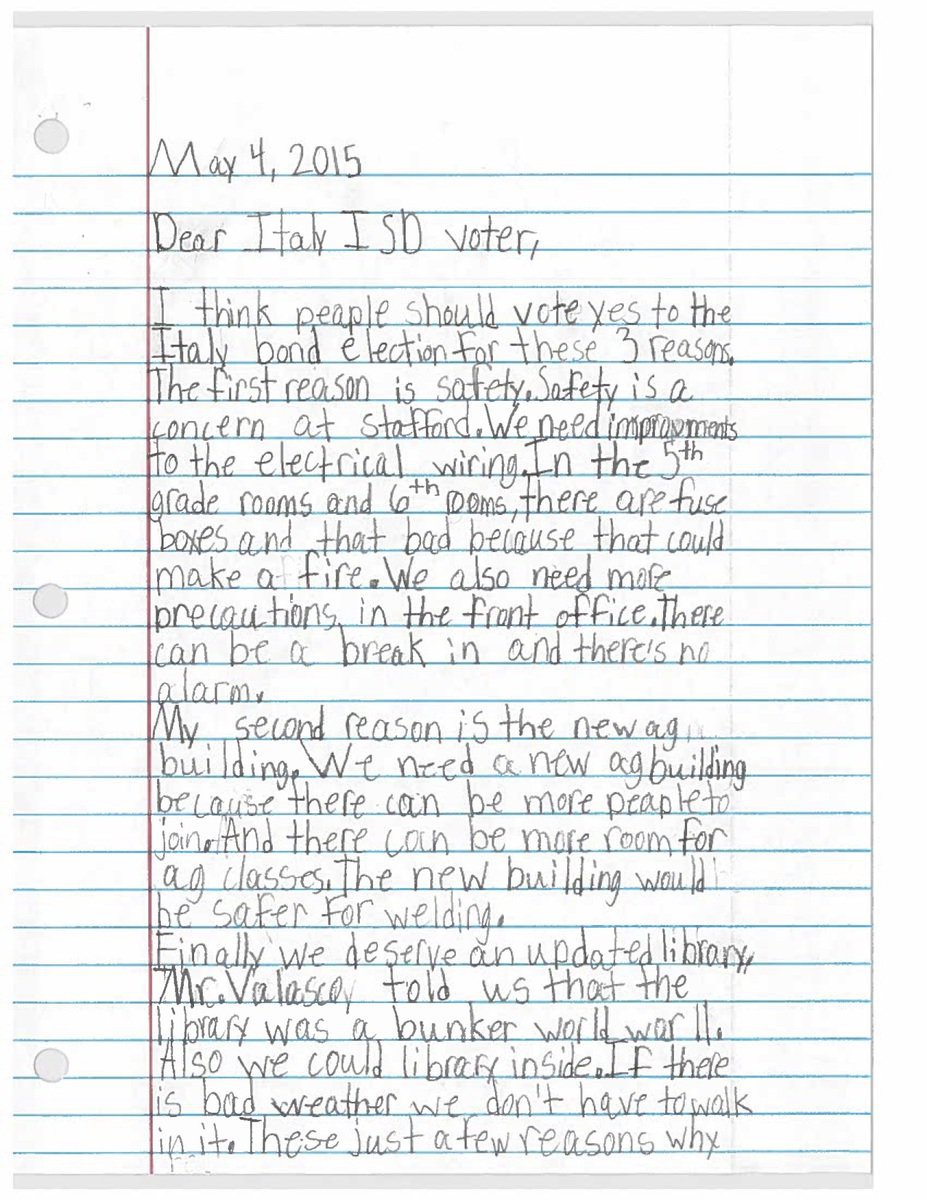 May 4, 2015
Dear Italy ISD voter,
I think peaple should vote yes to the
Italy bond election for these 3 reasons.
The first reason is safety. Safety is a
concern at stafford. We need improvments
to the electrical wiring. In the 5th
grade rooms and 6th rooms, there are fuse
boxes and that bad because that could
make a fire. We also need more
precautions in the front office. There
can be a break in and there's no
alarm.
My second reason is the new ag
building. We need a new ag building
because there can be more peaple to
join. And there can be more room for
ag classes. The new building would
be safer for welding.
Finally we deserve an updated library,
Mr. Valasco told us that the
library was a bunker world war II.
Also we could library inside. If there
is bad weather we don't have to walk
in it. These just a few reasons why